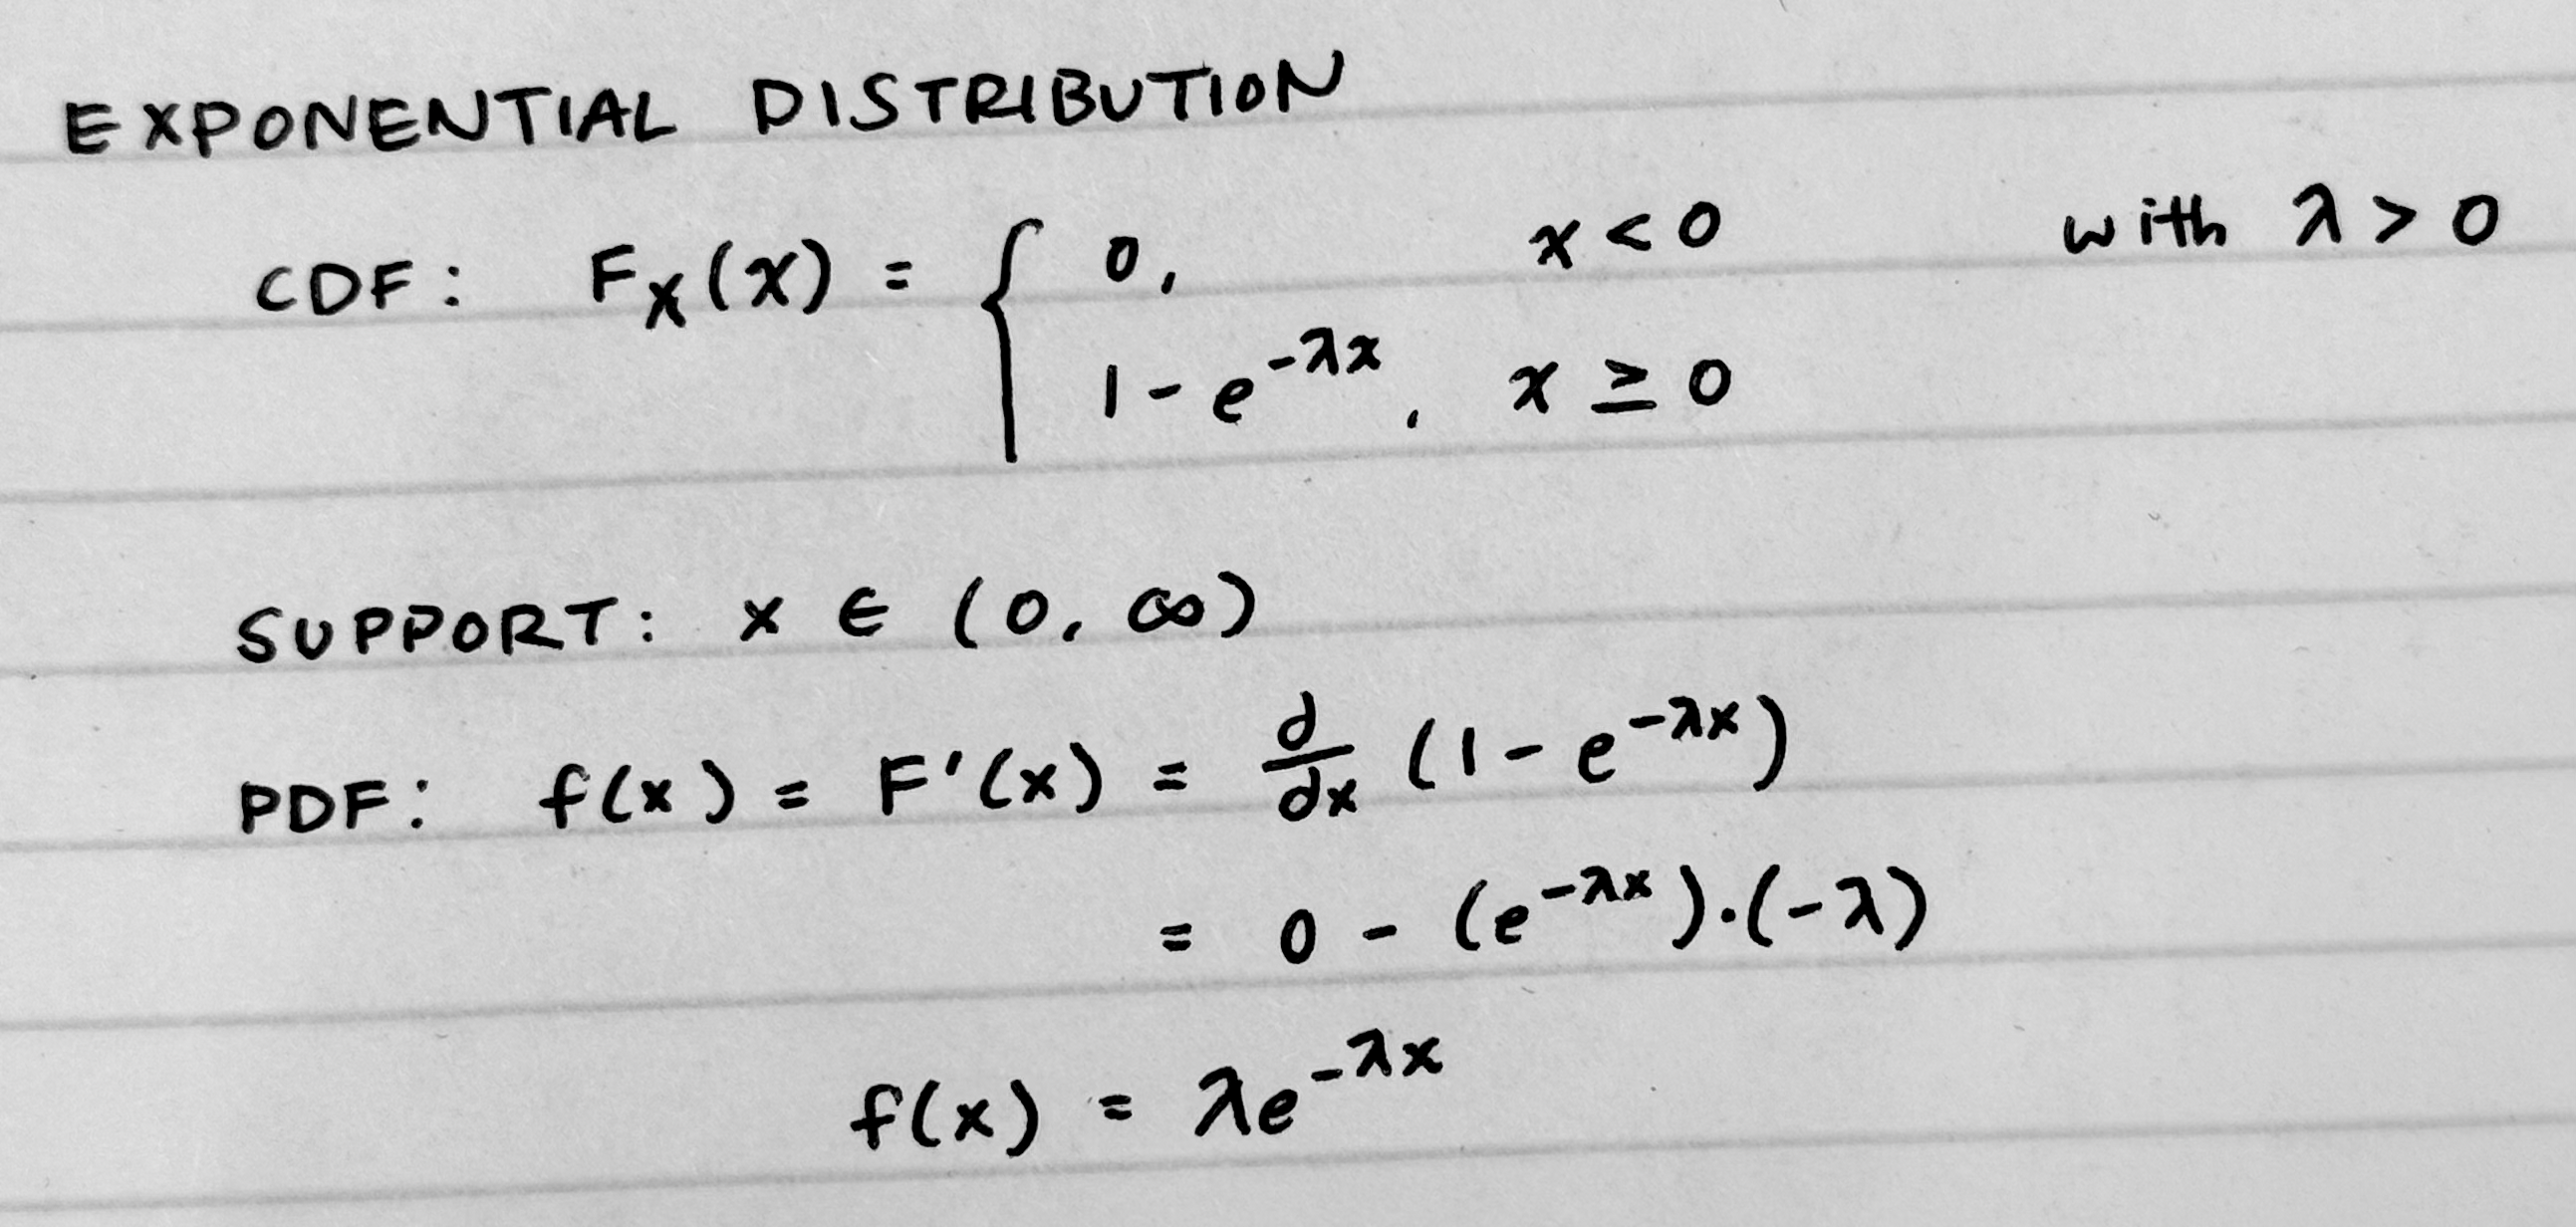 EXPONENTIAL DISTRIBUTION
CDF: F_X(x) = { 0, x < 0 with λ > 0
1 - e^{-λx}, x ≥ 0
SUPPORT: x ∈ (0, ∞)
PDF: f(x) = F'(x) = d/dx (1 - e^{-λx})
= 0 - (e^{-λx})·(-λ)
f(x) = λe^{-λx}